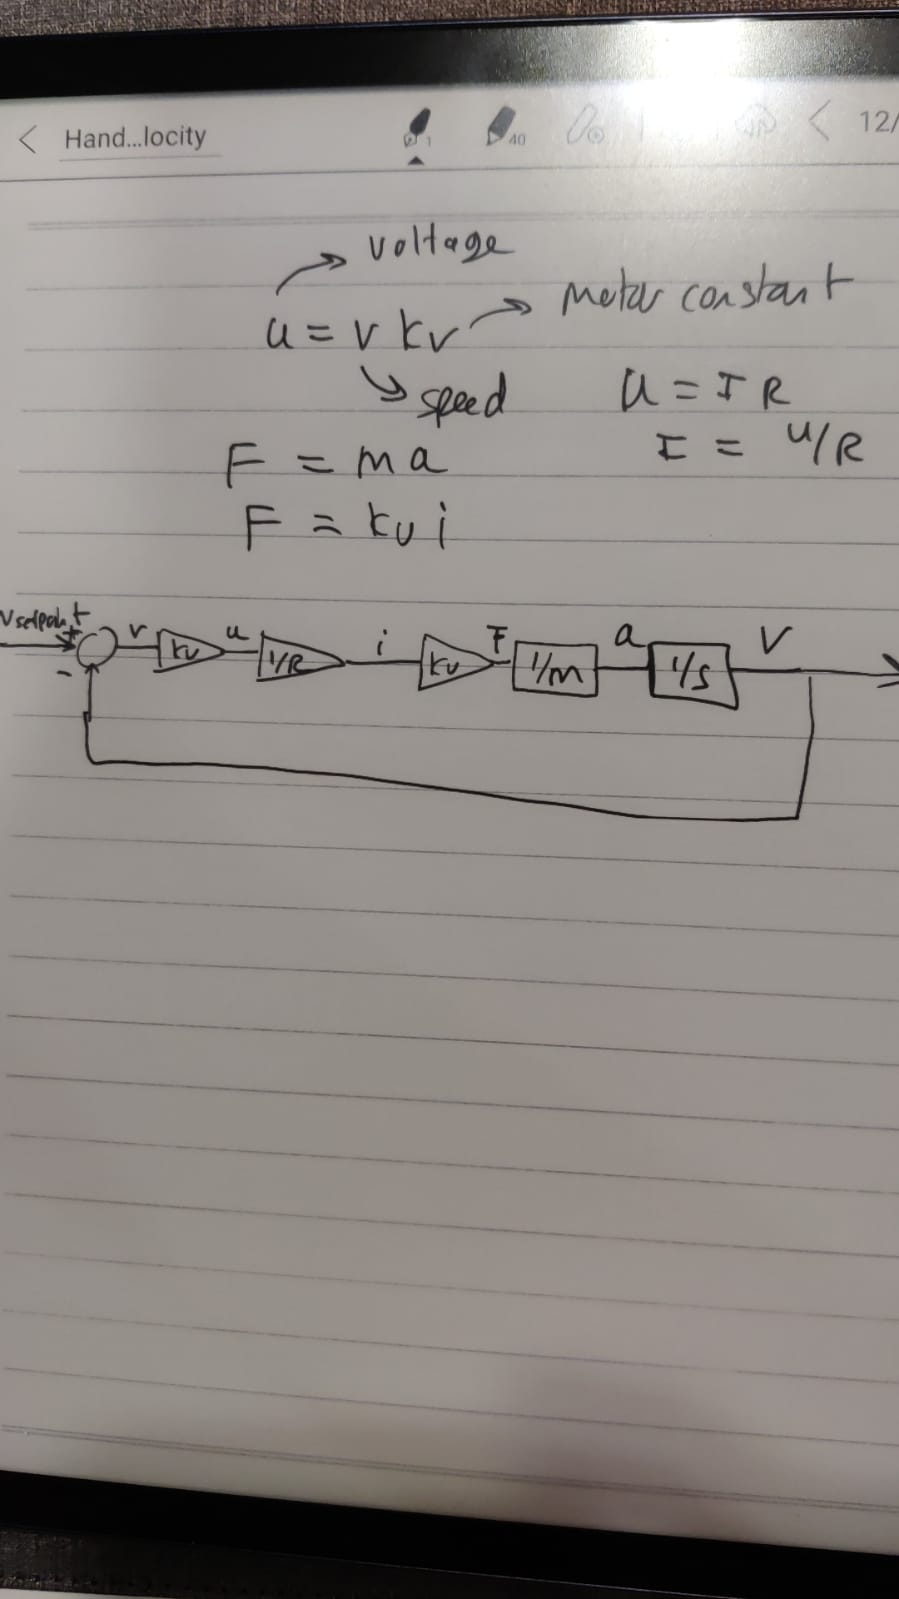 Hand...locity
1
40
12/
voltage
u = v kv
motor constant
speed
U = I R
I = U/R
F = ma
F = kv i
Vsetpoint
+
-
v
kv
u
1/R
i
kv
F
1/m
a
1/s
V